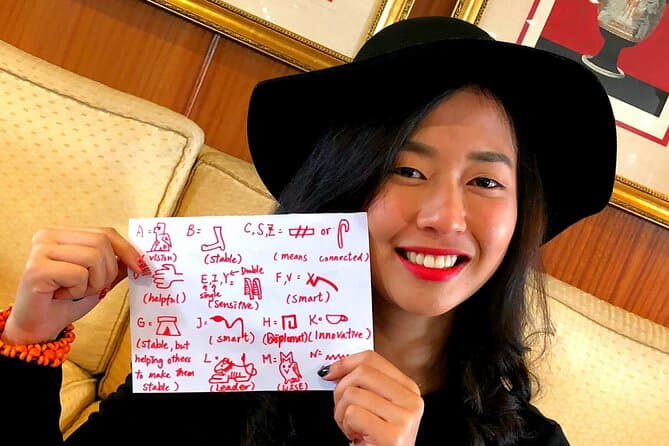 A = B = C, S, Z = or
(vision) (stable) (means connected)
E, I, Y = Double F, V =
(helpful) single (sensitive) (smart)
G = J = H = K =
(stable, but (smart) (Diplomat) (Innovative)
helping others L = M = N =
to make them (Leader) (Wise)
stable)